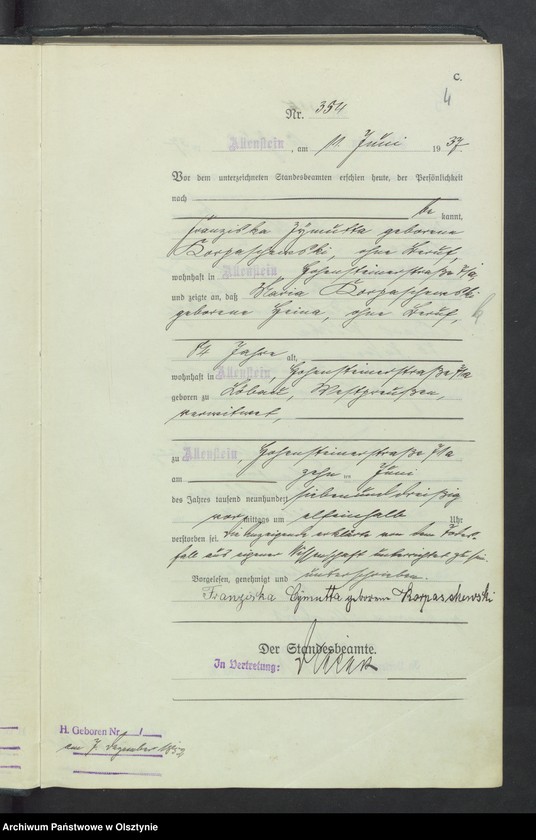 C.
4
Nr. 354
Allenstein, am 11. Juni 1937.
Vor dem unterzeichneten Standesbeamten erschien heute, der Persönlichkeit
nach
be kannt,
Franziska Zymutta geborene
Korpaschewski, ohne Beruf,
wohnhaft in Allenstein, Hohensteinerstraße
und zeigte an, daß Maria Korpaschewski
geborene Heina, ohne Beruf,
84 Jahre alt,
wohnhaft in Allenstein, Hohensteinerstraße
geboren zu Löbau, Westpreußen,
verwitwet,
zu Allenstein, Hohensteinerstraße
am zehn ten Juni
des Jahres tausend neunhundert siebenunddreißig
vor mittags um elfeinhalb Uhr
verstorben sei. Die Anzeigende erklärte von dem Todes-
fall aus eigener Wissenschaft unterrichtet zu sein.
Vorgelesen, genehmigt und unterschrieben.
Franziska Cymutta geborene Korpaschewski
Der Standesbeamte.
In Vertretung:
H. Geboren Nr. /
am 7. Dezember
Archiwum Państwowe w Olsztynie